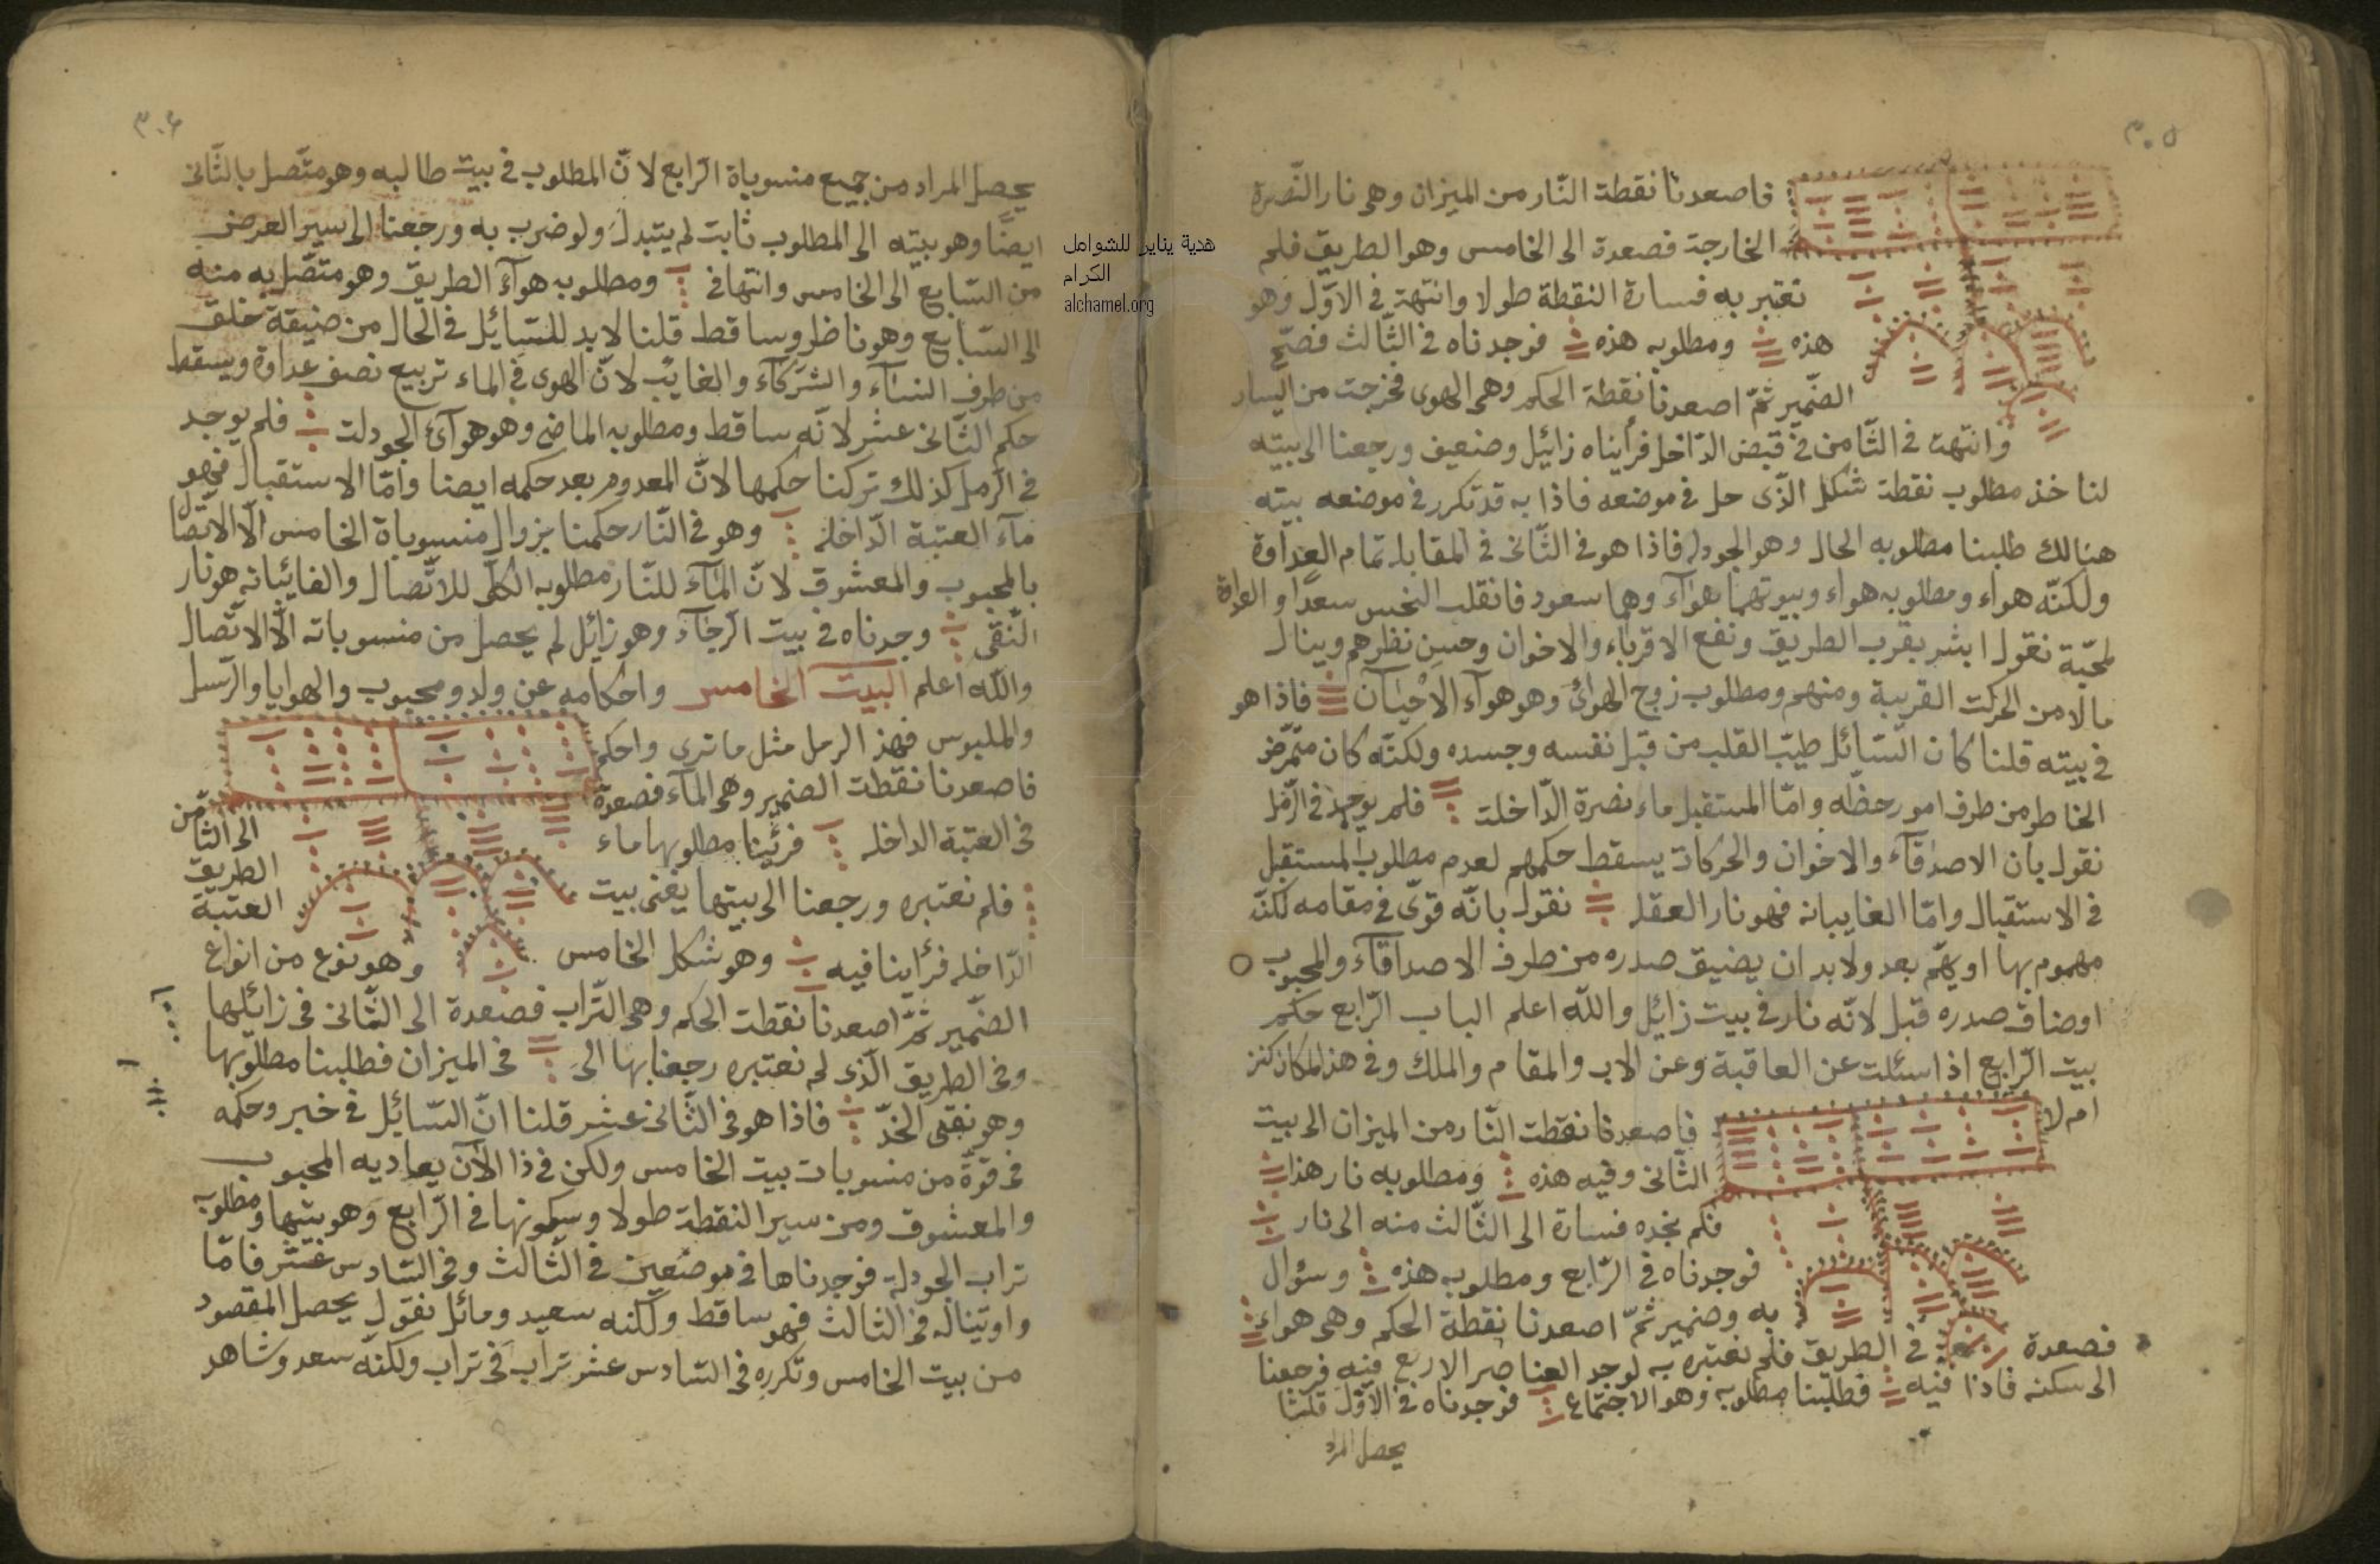 ٣٠٥
فاصعدنا نقطة النّار من الميزان وهى نار النّصرة
الخارجة فصعدة الى الخامس وهو الطريق فلم
نعتبر به فسارة النقطة طولا وانتهت فى الاوّل وهو
هذه ومطلوبه هذه فوجدناه فى الثّالث فصحّ
الضّمير ثمّ اصعدنا نقطة الحكم وهى الهوى فخرجت من اليسار
وانتهت فى الثّامن فى قبض الدّاخل فرأيناه زائيل وضعيف ورجعنا الى بيته
لنا خذ مطلوب نقطة شكل الّذى حل فى موضعه فاذا به قد تكرر فى موضعه بيته
هنالك طلبنا مطلوبه الحال وهو الجودله فاذا هو فى الثّانى فى المقابله تمام العداوة
ولكنّه هواء ومطلوبه هواء وبيوتهما هوآء وهما سعود فانقلب النحس سعدا و العداوة
لمحبّة نقول ابشر بقرب الطريق ونفع الاقرباء والاخوان وحسن نظرهم وينال
مالا من الحركت القريبة ومنهم ومطلوب زوج الهوائ وهو هوآء الاحيان فاذا هو
فى بيته قلنا كان السّائل طيّب القلب من قبل نفسه وجسده ولكنّه كان متمرّض
الخاطر من طرف امور حظّه وامّا المستقبل ماء نصرة الدّاخلت فلم يوجد فى الرّمل
نقول بان الاصدقآء والاخوان والحركات يسقط حكمهم لعدم مطلوب المستقبل
فى الاستقبال وامّا الغايبانه فهو نار العقله نقول بانّه قوّى فى مقامه لكنّه
مهموم بها او يهتم بعد ولابد ان يضيق صدره من طرف الاصداقآء والمحبوب
اوضاق صدره قبل لانّه نار فى بيت زائيل والله اعلم الباب الرّابع حكم
بيت الرّابع اذا سئلت عن العاقبة وعن الاب والمقام والملك وفى هذا المكان كنز
ام لا فاصعدنا نقطت النّار من الميزان الى بيت
الثّانى وفيه هذه ومطلوبه نار هذا
فلم نجده فسارة الى الثّالث منه الى نار
فوجدناه فى الرّابع ومطلوبه هذه وسؤال
به وضمير ثمّ اصعدنا نقطة الحكم وهى هواء
فصعدة فى الطريق فلم نعتبره به لوجد العناصر الاربع فيه فرجعنا
الى سكنه فاذا فيه فطلبنا مطلوبه وهو الاجتماع فوجدناه فى الاوّل قلنا
يحصل المراد
٣٠٦
يحصل المراد من جميع منسوباة الرّابع لانّ المطلوب فى بيت طالبه وهو متّصل بالثّانى
ايضًا وهو بيته الى المطلوب ثابت لم يتبدل ولو ضرب به ورجعنا الى سير العرض
من السّابع الى الخامس وانتهافى ومطلوبه هوآء الطريق وهو متّصل به منه
الى السّابع وهو ناظر وساقط قلنا لابد للسّائل فى الحال من ضيقة خلق
من طرف النسآء والشركآء والغايب لانّ الهوى فى الماء تربيع نصف عداوة ويسقط
حكم الثّانى عشر لانّه ساقط ومطلوبه الماضى وهو هوآئ الجودلت فلم يوجد
فى الرّمل كذلك تركنا حكمها لانّ المعدوم بعد حكمه ايضا وامّا الاستقبال فهو
مآء العتبة الدّاخله وهو فى النّار حكمنا بزوال منسوباة الخامس الّا الاتّصال
بالمحبوب والمعشوق لانّ المآء للنّار مطلوبه الكلّى للاتّصال والغايبانه هو نار
النّقى وجدناه فى بيت الرّجآء وهو زائل لم يحصل من منسوباته الّا الاتّصال
والله اعلم البيت الخامس واحكامه عن ولد ومحبوب والهوايا والرّسل
والملبوس فهذ الرمل مثل ماترى واحكم
فاصعدنا نقطت الضمير وهى المآء فصعدة الى الثّامن
فى العتبة الداخله فرئينا مطلوبها ماء الطريق
فلم نعتبره ورجعنا الى بيتها يغنى بيت العتبة
الدّاخله فرأينا فيه وهو شكل الخامس وهو نوع من انواع
الضّمير ثمّ اصعدنا نقطت الحكم وهى التّراب فصعدة الى الثّانى فى زائلها
وفى الطريق الّذى لم نعتبره رجعنا بها الى فى الميزان فطلبنا مطلوبها
وهو نقى الخدّ فاذا هو فى الثّانى عشر قلنا انّ السّائيل فى خبر وحكمه
فى قوّة من منسوبات بيت الخامس ولكن فى ذا الآن يعاديه المحبوب
والمعشوق ومن سير النقطة طولا وسكونها فى الرّابع وهو بيتها ومطلوبه
تراب الجودله فوجدناها فى موضعين فى الثّالث وفى السّادس عشر فامّا
واوتيناله فى الثالث فهو ساقط ولكنه سعيد ومائل نقول يحصل المقصود
من بيت الخامس وتكرره فى السّادس عشر تراب فى تراب ولكنّه سعد وشاهد
هدية يناير للشوامل
الكرام
alchamel.org